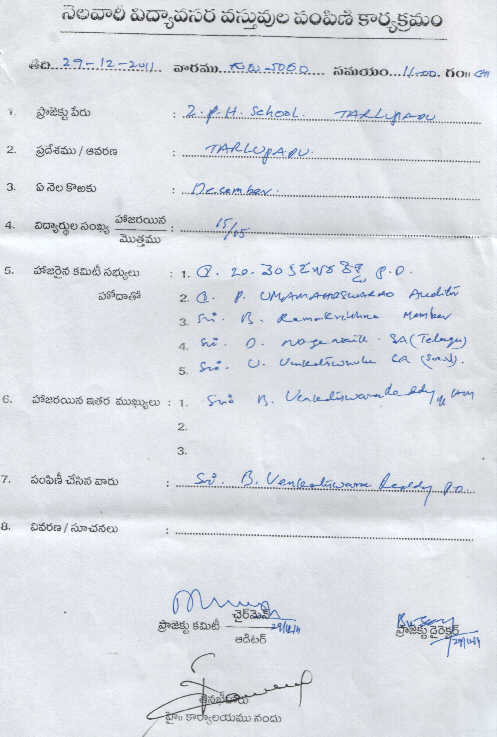 నెలవారీ విద్యావసర వస్తువుల పంపిణి కార్యక్రమం
తేది. 29-12-2011 వారము. సమయం. 11-00. గం॥
1. ప్రాజెక్టు పేరు : Z.P.H. School. TARLUPADU
2. ప్రదేశము / ఆవరణ : TARLUPADU.
3. ఏ నెల కొఱకు : December.
4. విద్యార్థుల సంఖ్య హాజరయిన : 15/05
మొత్తము
5. హాజరైన కమిటీ సభ్యులు : 1. P.D.
హోదాతో 2. P. UMAMAHESWARAO Auditor
3. Sri. B. Ramakrishna Member
4. Sri. D. Naga naik. SA (Telugu)
5. Sri. U. SA
6. హాజరయిన ఇతర ముఖ్యులు : 1. Sri B. Venkateswara Reddy HM
2.
3.
7. పంపిణీ చేసిన వారు : Sri. B. Venkateswara Reddy P.D
8. వివరణ / సూచనలు :
ప్రాజెక్టు కమిటీ ఛైర్మెన్ 29/12/11
ఆడిటర్
ప్రాజెక్టు డైరెక్టర్ 29/12/11
కార్యాలయము నందు